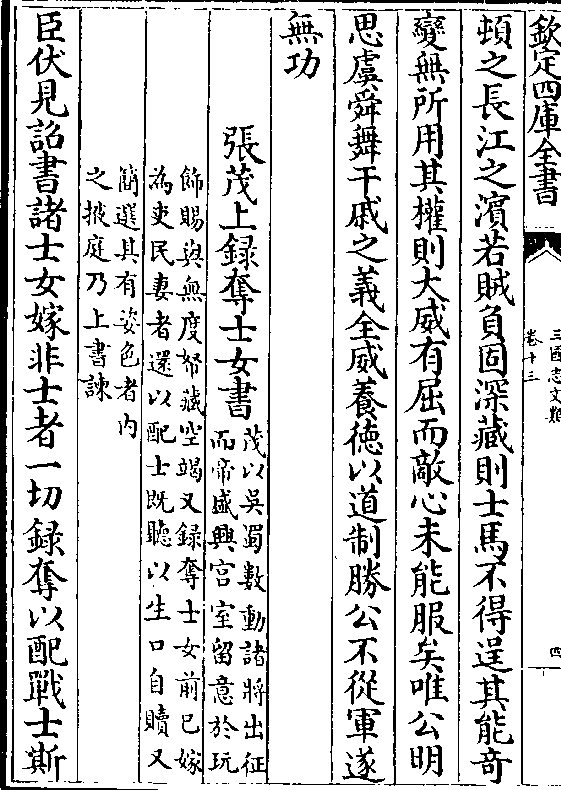 欽定四庫全書
三國志文類
卷十三
四
頓之長江之濱若賊負固深藏則士馬不得逞其能奇
變無所用其權則大威有屈而敵心未能服矣唯公明
思虞舜舞干戚之義全威養徳以道制勝公不從軍遂
無功
張茂上録奪士女書
茂以吳蜀數動諸將出征
而帝盛興宫室留意於玩
飾賜與無度帑藏空竭又録奪士女前已嫁
為吏民妻者還以配士既聽以生口自贖又
簡選其有姿色者内
之掖庭乃上書諫
臣伏見詔書諸士女嫁非士者一切録奪以配戰士斯